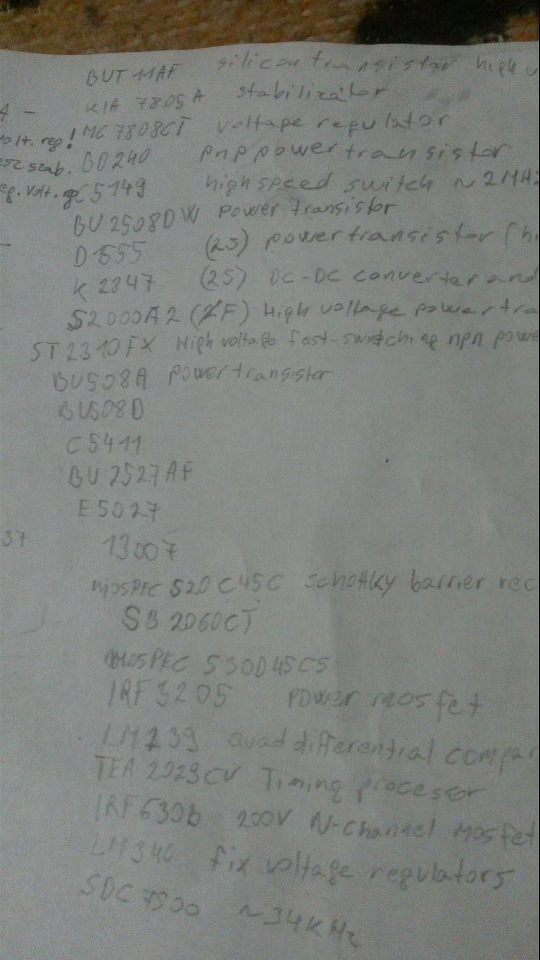 BUT 11AF silicon transistor high v
A - KIA 7805A stabilizátor
volt. reg! MC7808CT voltage regulator
stab. BD240 pnp power transistor
eg. volt. reg C5149 high speed switch ~2MHz
BU2508DW power transistor
D1555 (2S) power transistor (hi
K2847 (2S) DC-DC converter and
S2000A2 (AF) High voltage power tra
ST2310FX High voltage fast-switching npn powe
BU508A power transistor
BU508D
C5411
BU2527AF
E5027
37 13007
MOSPEC S20C45C schottky barrier rec
SB2060CT
MOSPEC S30D45CS
IRF3205 power mosfet
LM239 quad differential compar
TEA2029CV Timing processor
IRF630b 200V N-channel Mosfet
LM340 fix voltage regulators
SDC7500 ~34KHz